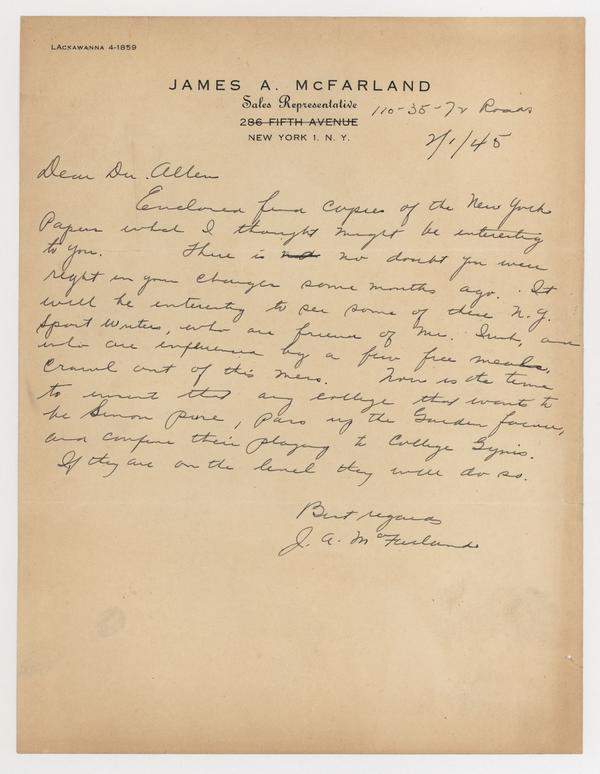 LACKAWANNA 4-1859
JAMES A. McFARLAND
Sales Representative
286 FIFTH AVENUE
110-35-72 Road
NEW YORK 1, N. Y.
2/1/45
Dear Dr. Allen
Enclosed find copies of the New York
Papers which I thought might be interesting
to you. There is not no doubt you were
right in your charges some months ago. It
will be interesting to see some of these N.Y.
Sport Writers, who are friend of Mr. Irish, and
who are influenced by a few free meals,
crawl out of this mess. Now is the time
to insist that any college that wants to
be Simon pure, pass up the Garden forever,
and confine their playing to College Gyms.
If they are on the level they will do so.
Best regards
J. A. McFarland